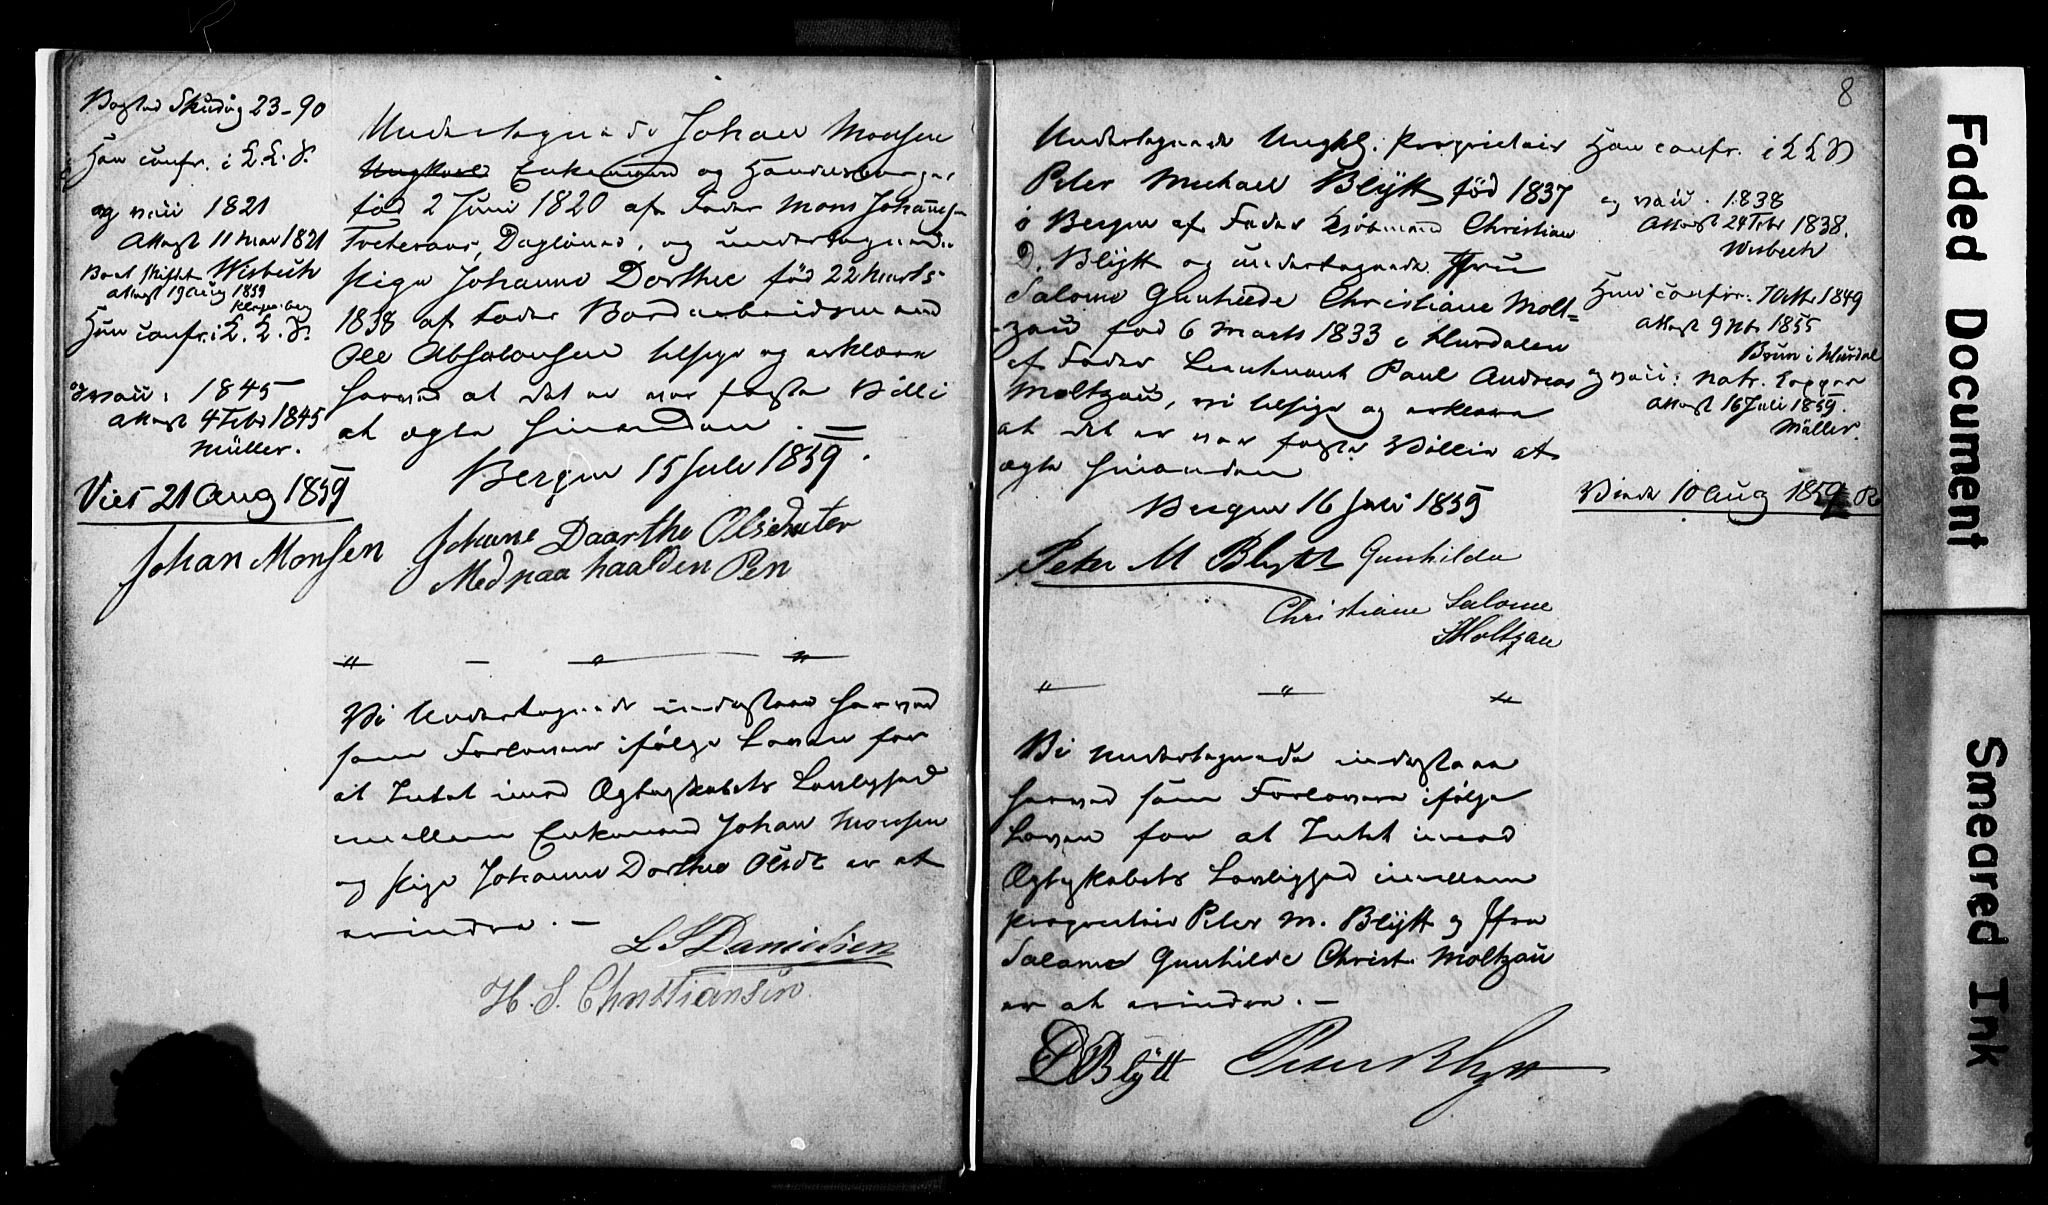 Han confr. i L.L.S.
og vacc 1821
Attest 11 Mar 1821
Wisbech
Attest 19 Aug 1859
Hun confr. i L.L.S.
og vacc: 1845
Attest 4 Febr 1845
Müller.
Viet 21 Aug 1859
Undertegnede Johan Monsen
Ungkarl Enkemand og Handelsborger
fød 2 Juni 1820 af Fader Mons Johannes
Dagløner, og undertegnede
Pige Johanne Dorthe fød 22 Marts
1838 af Fader Bordarbeidsmand
Ole Absalonsen tilstaae og erklære
herved at det er vor faste Villie
at ægte hinanden. —
Bergen 15 Juli 1859.
Johan Monsen
Johane Daarthe Olsdatter
Med paa haalden Pen
" — " — "
Vi Undertegnede indestaae herved
som Forlovere ifølge Loven for
at Intet imod Ægteskabets Lovlighed
mellem Enkemand Johan Monsen
og Pige Johanne Dorthea Olsdt er at
erindre. —
L S Danielsen
H. S. Christiansen.
8
Undertegnede Ungkl. Proprietair
Peter Michael Blÿtt fød 1837
i Bergen af Fader Kjøbmand Christian
D. Blÿtt og undertegnede Jfru
Salome Gunhilde Christiane Molt=
zau fød 6 Marts 1833 i Hurdalen
af Fader Lieutnant Paul Andreas
Moltzau, vi tilstaae og erklære
at det er vor faste Villie at
ægte hinanden
Bergen 16 Juli 1859
Peter M Blytt Gunhilda
Christiane Salome
Moltzau
" — " — "
Vi Undertegnede indestaae
herved som Forlovere ifølge
Loven for at Intet imod
Ægteskabets Lovlighed imellem
Proprietair Peter M. Blÿtt og Jfru
Salome Gunhilde Christ. Moltzau
er at erindre. —
Blÿtt Peter Blytt
Han confr. i L L S
og vacc. 1838
Attest 24 Febr 1838.
Wisbech
Hun confr: 7 Oktr 1849
Attest 9 1855
Brun i Hurdal
og vacc: natr. Kopper
Attest 16 Juli 1859.
Müller.
Viede 10 Aug 1859
Faded Document
Smeared Ink